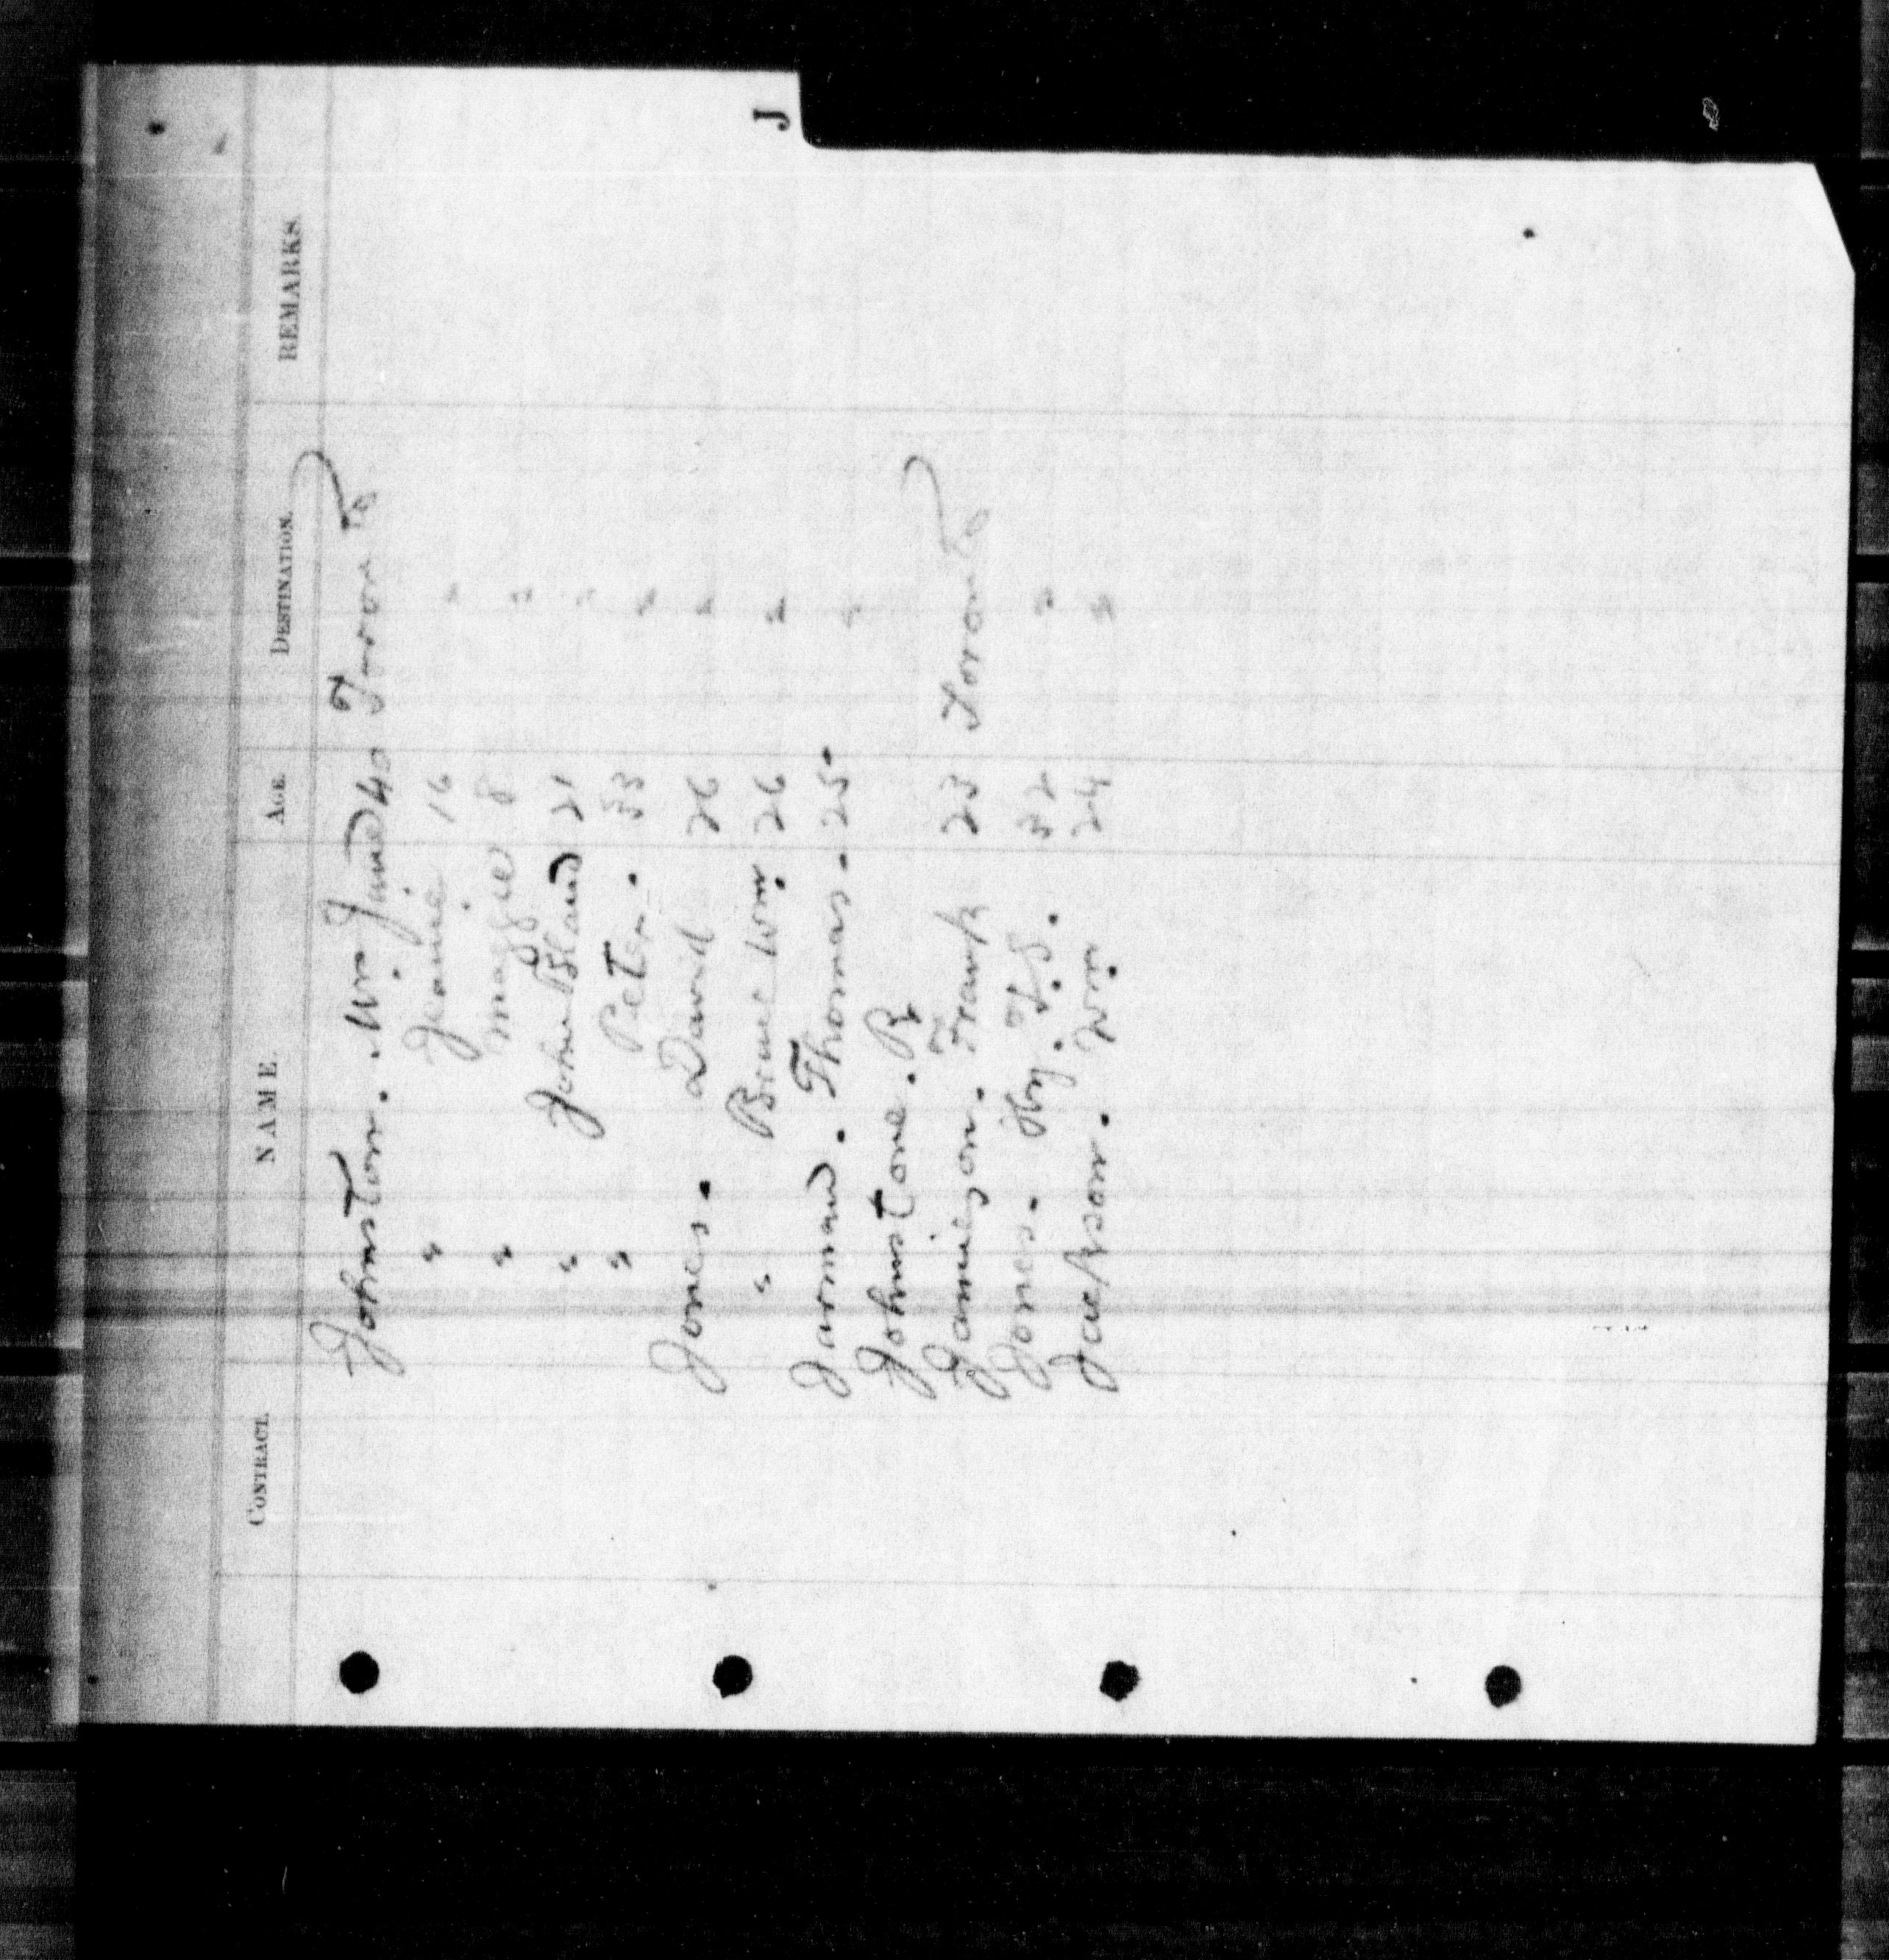 J
CONTRACT. NAME. AGE. DESTINATION. REMARKS.
Johnston. Mrs Jane 40 Toronto
" Jeannie 16 "
" Maggie 8 "
" John Bland 21 "
" Peter. 33 "
Jones. David 26 "
" Bruce Wm 26 "
Jarman. Thomas. 25. "
Johnstone. R
Jamieson. Frank 23 Toronto
Jones. Hy. 32 "
Jackson. Wm 24 "